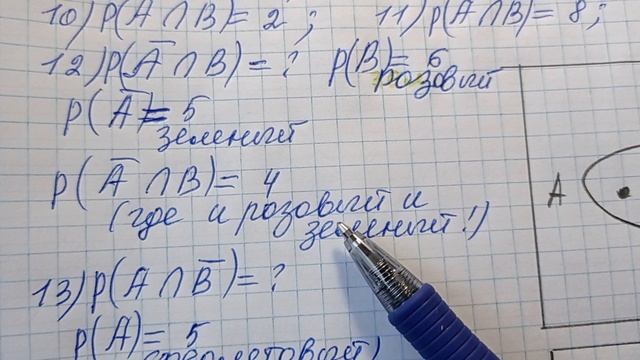 10) P(A ∩ B) = 2; 11) P(A ∩ B) = 8;
12) P(A̅ ∩ B) = ? P(B) = 6
розовый
P(A̅) = 5
зеленый
P(A̅ ∩ B) = 4
(где и розовый и
зеленый!)
A
13) P(A ∩ B̅) = ?
P(A) = 5